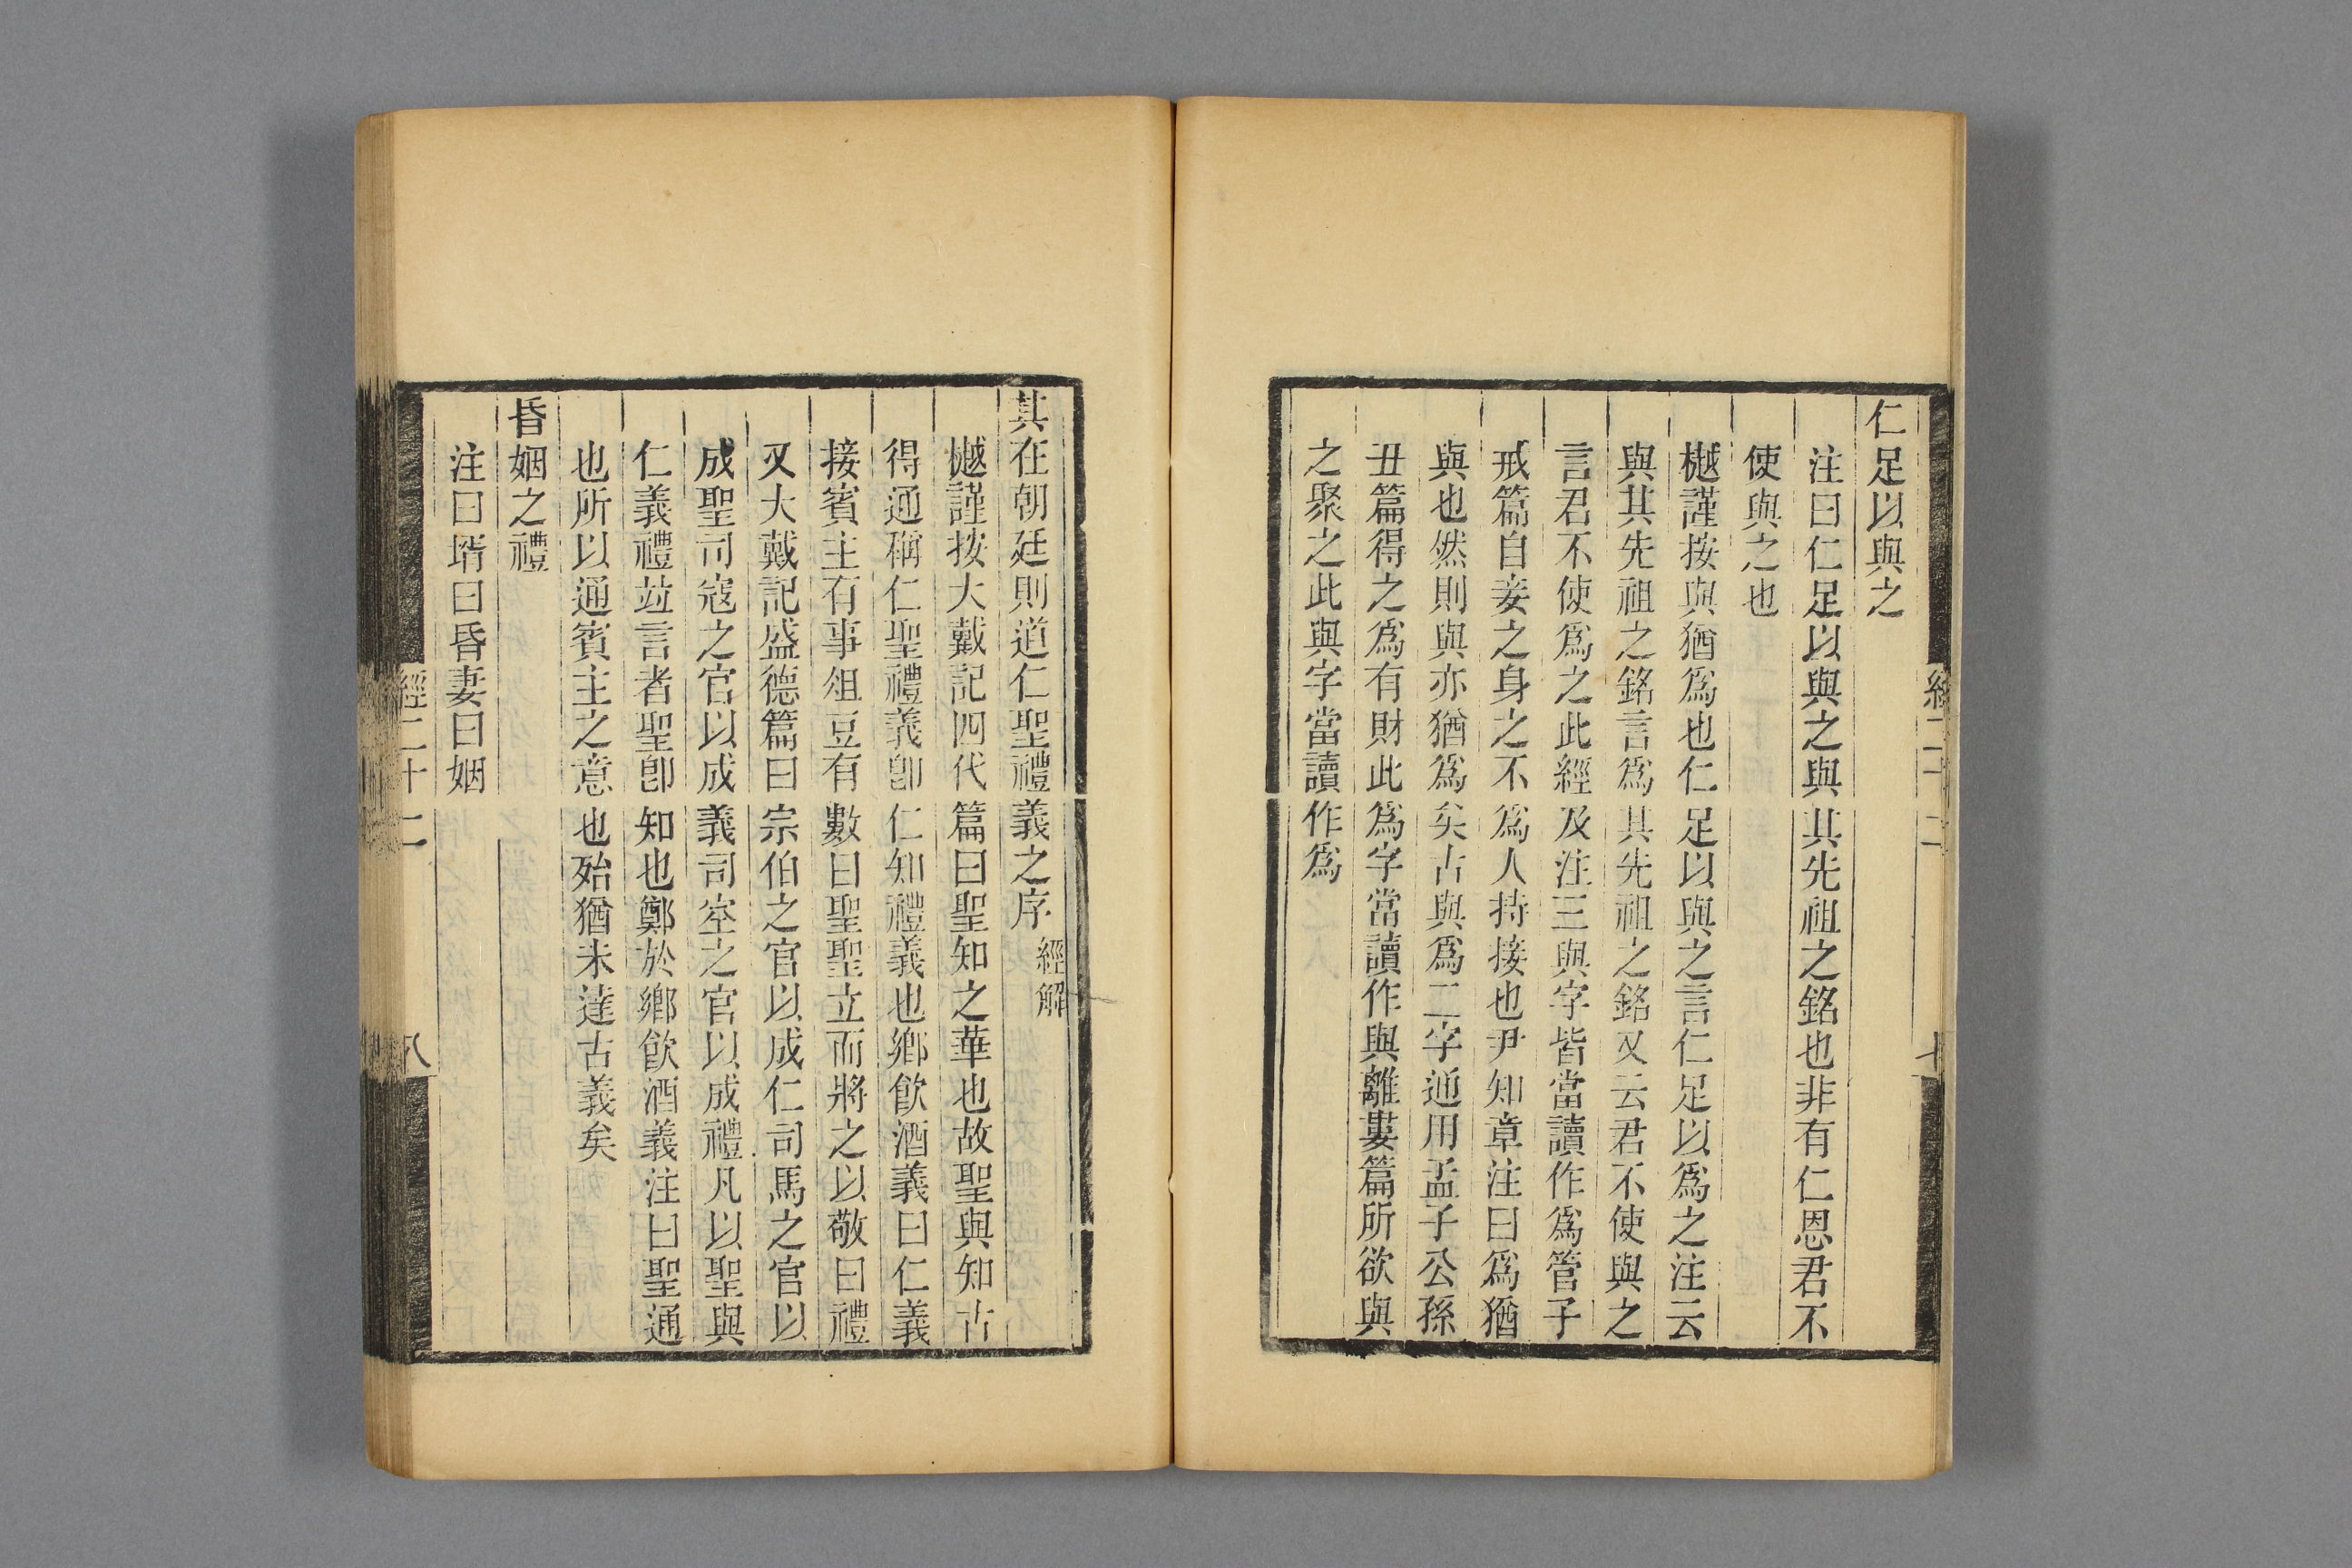 仁足以與之
注曰仁足以與之與其先祖之銘也非有仁恩君不
使與之也
樾謹按與猶爲也仁足以與之言仁足以爲之注云
與其先祖之銘言爲其先祖之銘又云君不使與之
言君不使爲之此經及注三與字皆當讀作爲管子
戒篇自妾之身之不爲人持接也尹知章注曰爲猶
與也然則與亦猶爲矣古與爲二字通用孟子公孫
丑篇得之爲有財此爲字當讀作與離婁篇所欲與
之聚之此與字當讀作爲
其在朝廷則道仁聖禮義之序 經解
樾謹按大戴記四代篇曰聖知之華也故聖與知古
得通稱仁聖禮義卽仁知禮義也鄉飮酒義曰仁義
接賓主有事俎豆有數曰聖聖立而將之以敬曰禮
又大戴記盛德篇曰宗伯之官以成仁司馬之官以
成聖司寇之官以成義司空之官以成禮凡以聖與
仁義禮竝言者聖卽知也鄭於鄉飮酒義注曰聖通
也所以通賓主之意也殆猶未達古義矣
昏姻之禮
注曰壻曰昏妻曰姻
經二十二
八